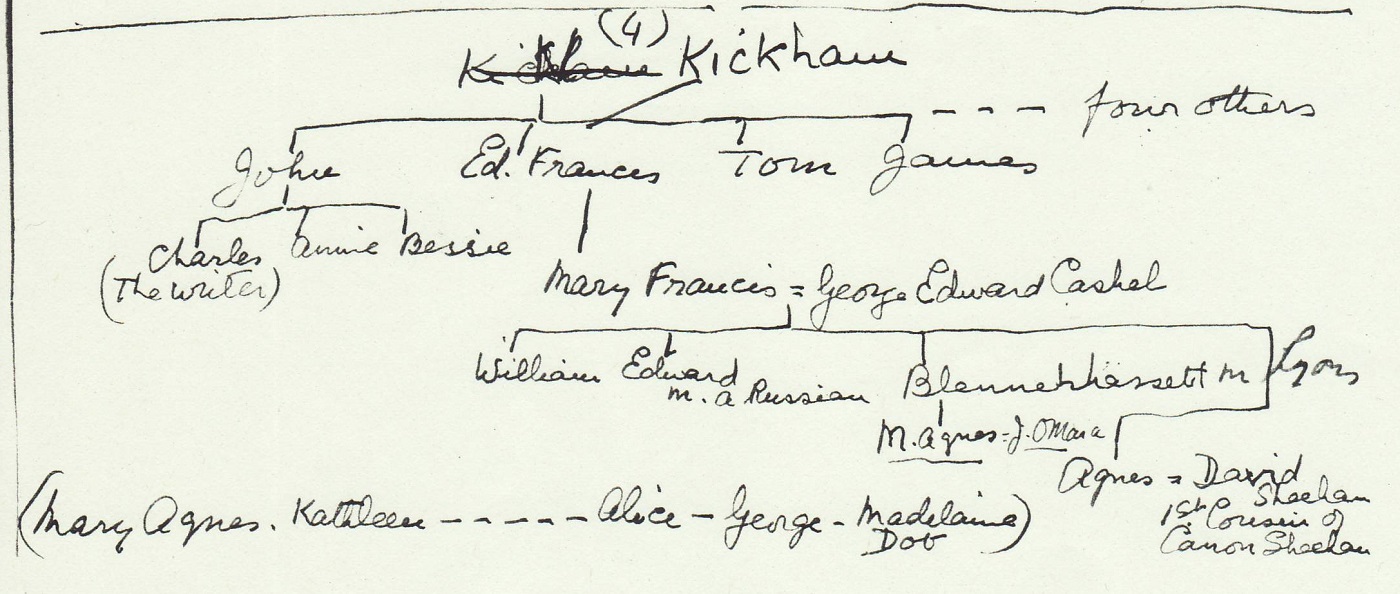 (4)
Kickham Kickham
John Ed. Frances Tom James - - - four others
Charles Annie Bessie
(The writer)
Mary Francis = George Edward Cashel
William Edward Blennerhassett m Lyons
m. a Russian
M. Agnes = J. OMara
Agnes = David
Sheehan
1st Cousin of
Canon Sheehan
(Mary Agnes. Kathleen - - - - - Alice - George - Madelaine)
Dot